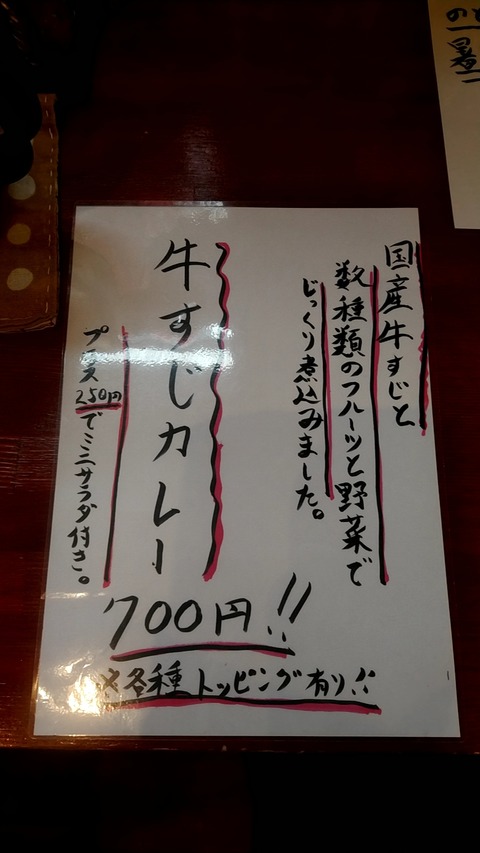 国産牛すじと
数種類のフルーツと野菜で
じっくり煮込みました。
牛すじカレー
プラス250円でミニサラダ付き。
700円!!
※各種トッピング有り!!